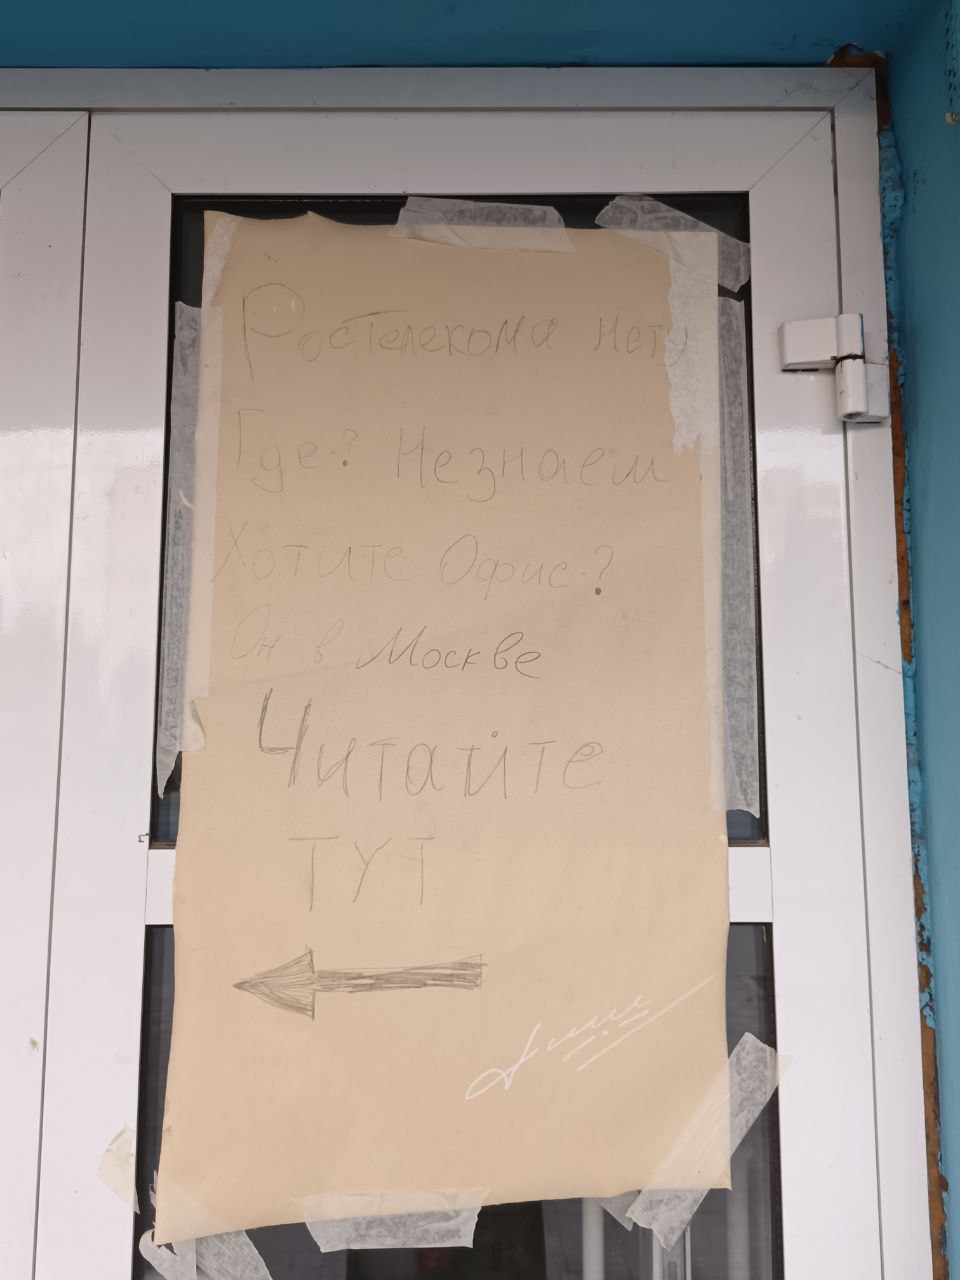 Ростелекома нету
Где? Незнаем
Хотите Офис?
Он в Москве
Читайте
ТУТ